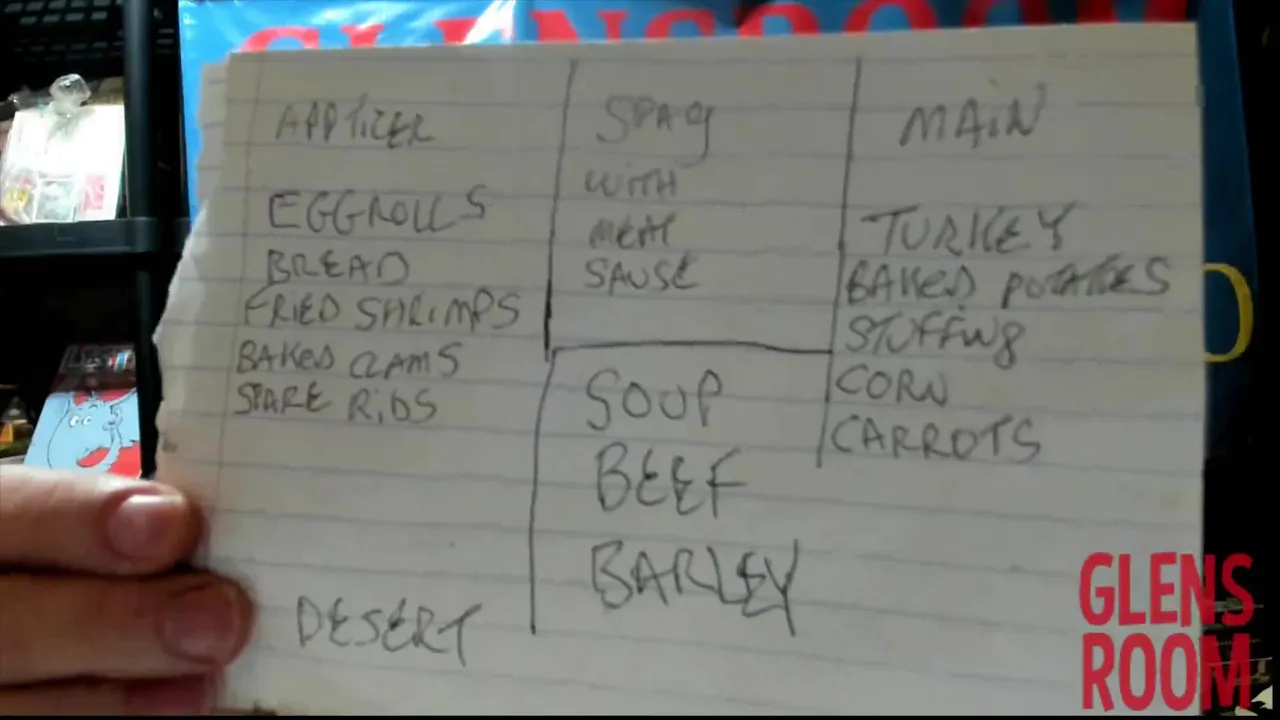 GLENSROOM
APPTIZER
EGGROLLS
BREAD
FRIED SHRIMPS
BAKED CLAMS
SPARE RIBS
DESERT
SPAG
WITH
MEAT
SAUSE
SOUP
BEEF
BARLEY
MAIN
TURKEY
BAKED POTATOES
STUFFING
CORN
CARROTS
GLENS
ROOM